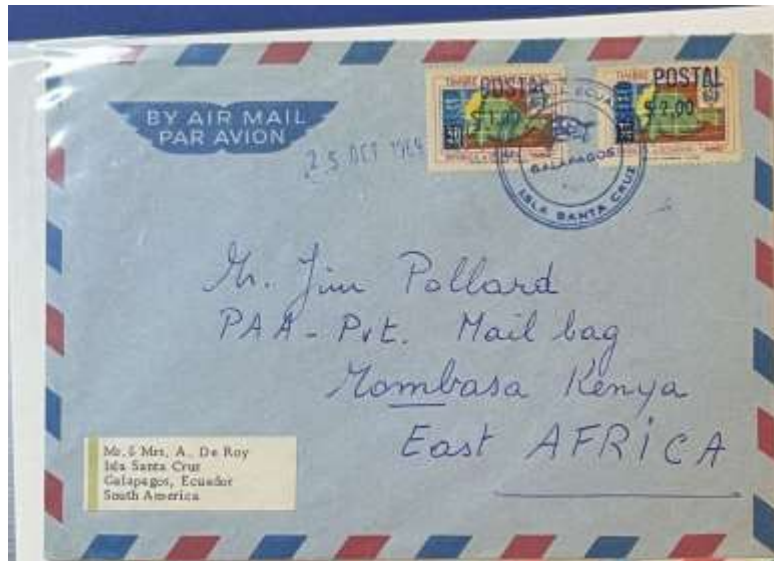 BY AIR MAIL
PAR AVION
25 OCT 1969
TIMBRE
POSTAL
$ 1,00
TIMBRE
POSTAL
$ 2,00
GALAPAGOS
ISLA SANTA CRUZ
Mr. Jim Pollard
PAA - Pvt. Mail bag
Mombasa Kenya
East AFRiCA
Mr. & Mrs. A. De Roy
Isla Santa Cruz
Galapagos, Ecuador
South America